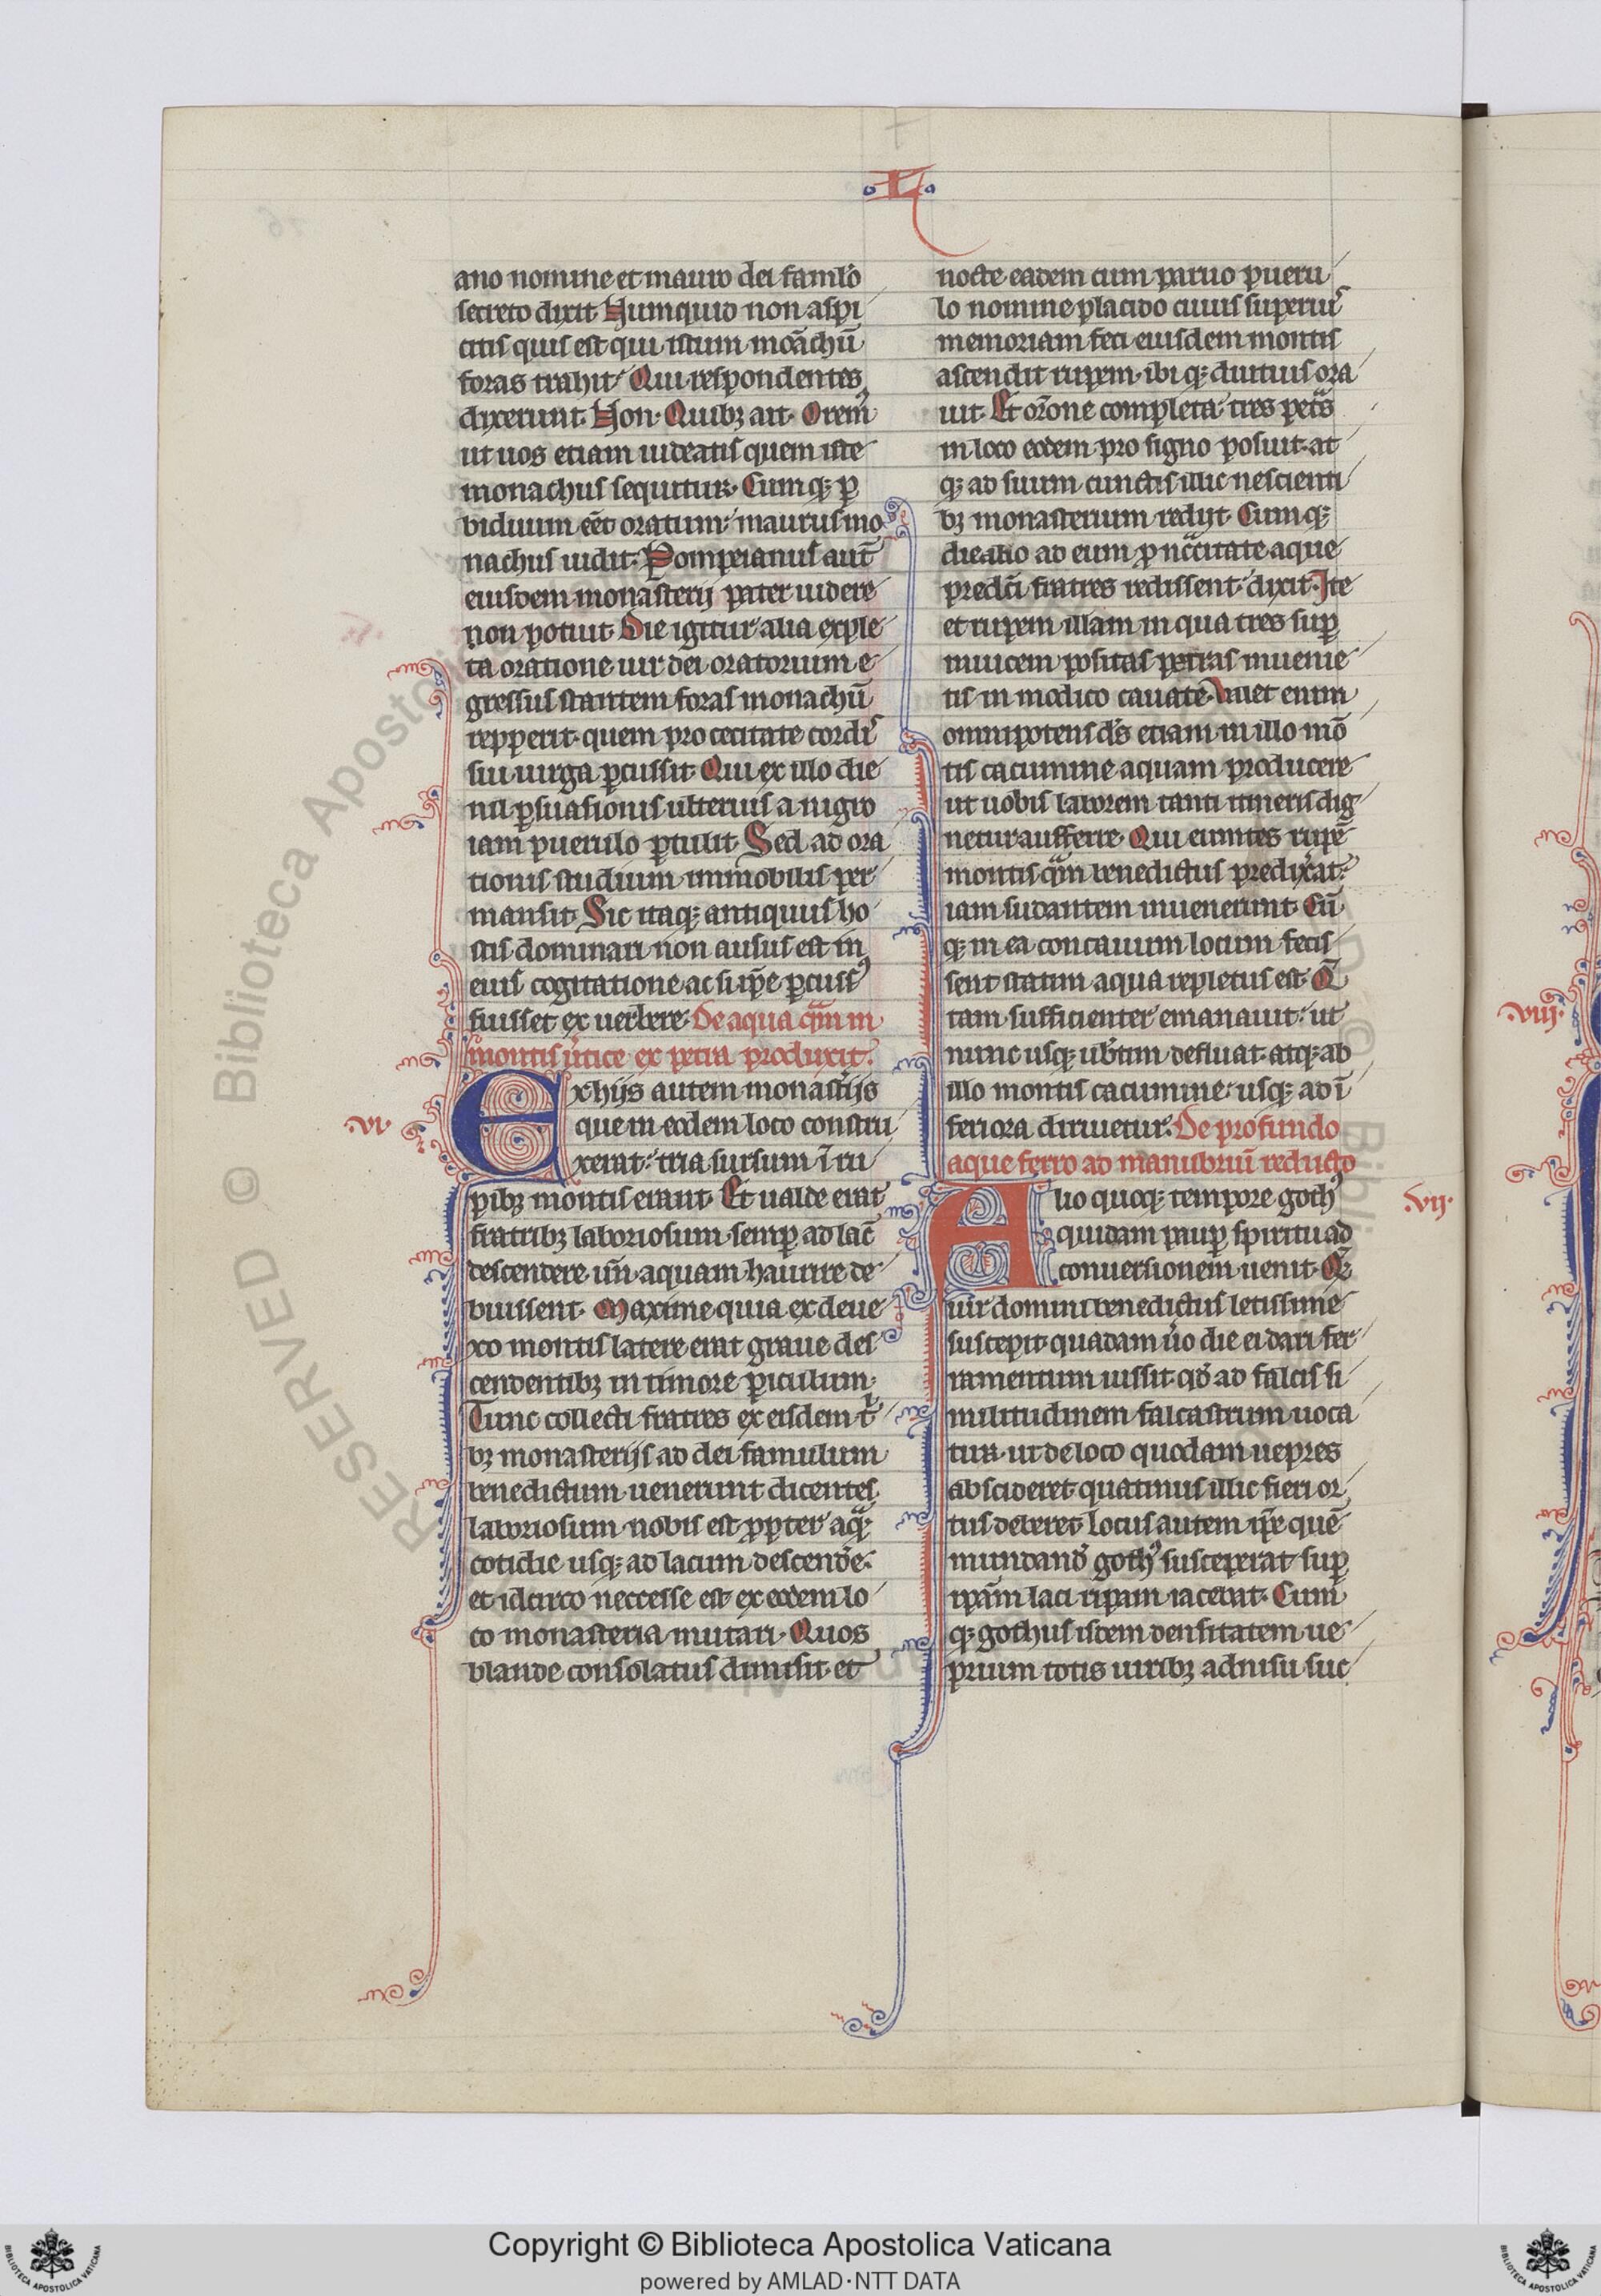 L
ano nomine et mauro dei famlō
secreto dixit Numquid non aspi
citis quis est qui istum moāchū
foras trahit Qui respondentes
dixerunt. Non. Quibꝫ ait. Orem᷒
ut uos etiam uideatis quem iste
monachus sequitur. Cumqꝫ ꝑ
biduum eēt oratum: maurus mo
nachus uidit. Pompeianus aut̄
eiusdem monasterij pater uidere
non potuit Die igitur alia exple
ta oratione uir dei oratorium e
gressus stantem foras monachū
repperit. quem pro cecitate cordis
sui uirga ꝑcussit Qui ex illo die
nil ꝑsuasionis ulterius a nigro
iam puerulo ꝑtulit. Sed ad ora
tionis studium immobilis per
mansit. Sic itaqꝫ antiquus ho
stis dominari non ausus est in
eius cogitatione. ac si ip̄e ꝑcuss᷒
fuisset ex uerbere. De aqua q̄m in
montis ũtice ex petra produxit.
vi.
Ex hijs autem monast̃ijs
que in eodem loco constru
xerat: tria sursum ī ru
pibꝫ montis erant. Et ualde erat
fratribꝫ laboriosum. semꝑ ad lac̄
descendere. un̄ aquam haurire de
buissent. Maxime quia ex deue
xo montis latere erat graue des
cendentibꝫ in timore ꝑiculum.
Tunc collecti fratres ex eisdem tⁱ
bꝫ monasterijs ad dei famulum
benedictum uenerunt dicentes.
laboriosum nobis est ꝓpter aq̄ꝫ
cotidie usqꝫ ad lacum descend̃e.
et idcirco neccesse est ex eodem lo
co monasteria mutari. Quos
blande consolatus dimisit. et
nocte eadem cum paruo pueru
lo nomine placido cuius superius
memoriam feci eiusdem montis
ascendit rupem. ibiqꝫ diutius ora
uit. Et or̄one completa. tres petᵃs
in loco eodem pro signo posuit. at
qꝫ ad suum cunctis illic nescienti
bꝫ monasterium redijt. Cumqꝫ
die alio ad eum ꝓ nccitate aque
predc̄i fratres redissent. dixit. Ite
et rupem illam in qua tres suꝑ
inuicem positas petras inuenie
tis in modico cauate. Valet enim
omnipotens d̄s etiam in illo mō
tis cacumine aquam producere
ut uobis laborem tanti itineris dig
netur aufferre. Qui euntes rupē
montis qᵃm benedictus predix̃at.
iam sudantem inuenerunt. Cū
qꝫ in ea concauum locum fecis
sent statim aqua repletus est. Q̄
tam sufficienter emanauit. ut
nunc usqꝫ ub̃tim defluat. atqꝫ ab
illo montis cacumine. usqꝫ ad ī
feriora diriuetur. De profundo
aque ferro ad manubriū reducto
vij.
Alio quoqꝫ tempore goth᷒
quidam pauꝑ spiritu ad
conuersionem uenit. Qꝫ
uir domini benedictus letissime
suscepit. quadam ũo die ei dari fer
ramentum iussit. qd̃ ad falcis si
militudinem falcastrum uoca
tur. ut de loco quodam uepres
abscideret. quatinus illic fieri or
tus deberet. locus autem ip̄e quē
mundand̃ goth᷒ susceperat. suꝑ
ip̄am laci ripam iacebat. Cum
qꝫ gothus isdem densitatem ue
prium totis uiribꝫ adnisu suc
viij.
Copyright © Biblioteca Apostolica Vaticana
powered by AMLAD·NTT DATA